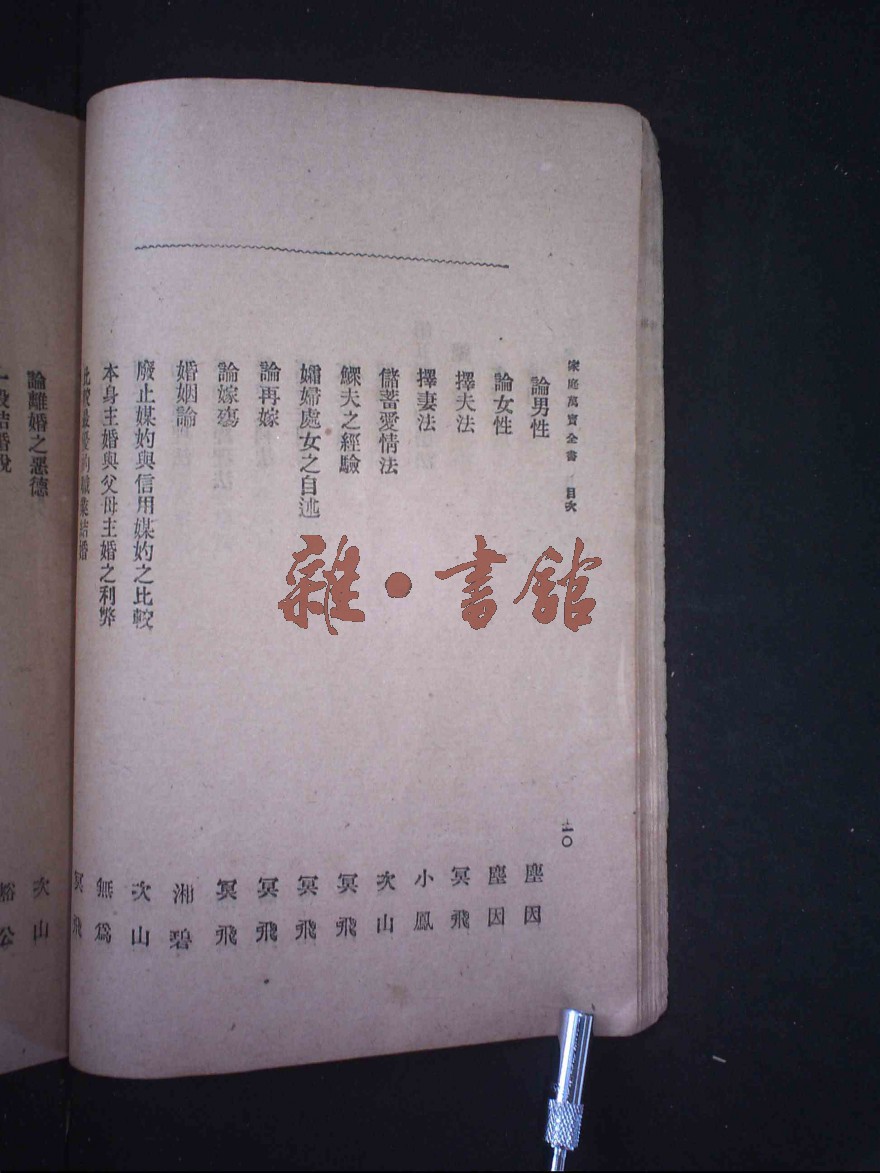 家庭萬寶全書 目次
二〇
論男性 塵因
論女性 塵因
擇夫法 冥飛
擇妻法 小鳳
儲蓄愛情法 次山
鰥夫之經驗 冥飛
孀婦處女之自述 冥飛
論再嫁 冥飛
論嫁殤 冥飛
婚姻論 湘碧
廢止媒妁與信用媒妁之比較 次山
本身主婚與父母主婚之利弊 無爲
結婚 冥飛
論離婚之惡德 次山
結婚說 公
雜·書館